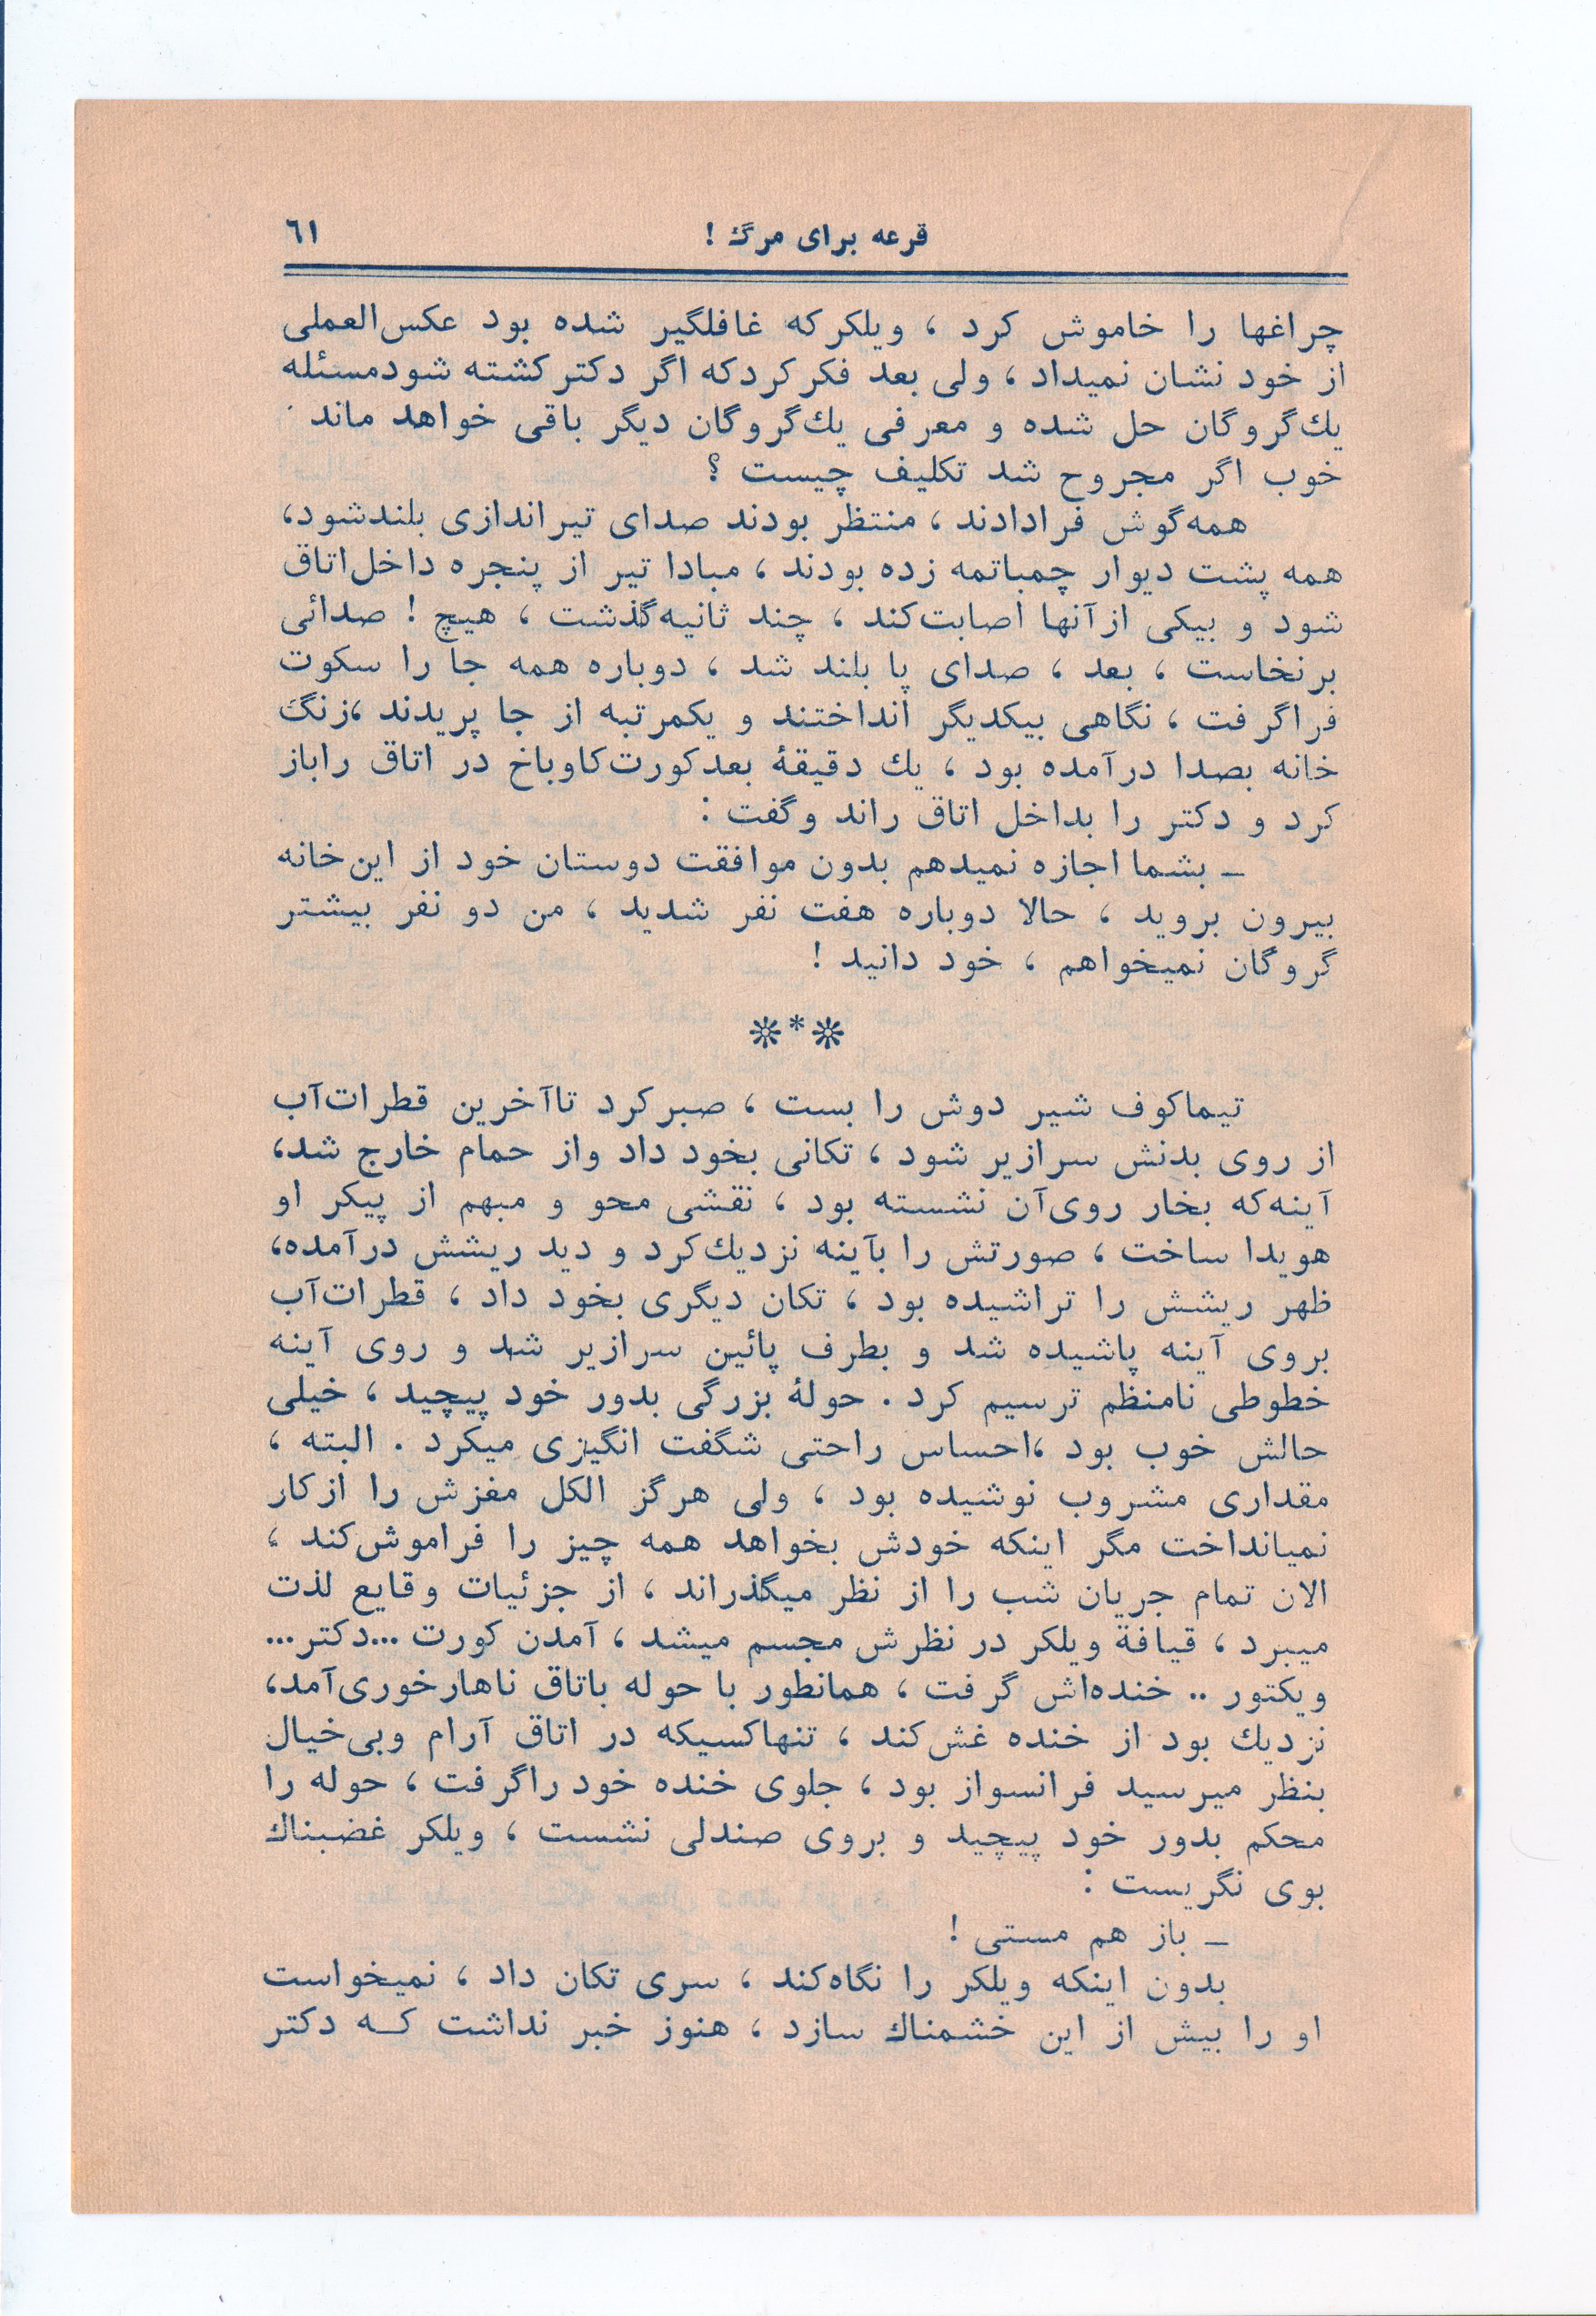 قرعه برای مرگ ! ٦١
چراغها را خاموش کرد ، ویلکرکه غافلگیر شده بود عکس‌العملی
از خود نشان نمیداد ، ولی بعد فکرکردکه اگر دکترکشته شودمسئله
یك‌گروگان حل شده و معرفی یك‌گروگان دیگر باقی خواهد ماند
خوب اگر مجروح شد تکلیف چیست ؟
همه‌گوش فرادادند ، منتظر بودند صدای تیراندازی بلندشود،
همه پشت دیوار چمباتمه زده بودند ، مبادا تیر از پنجره داخل‌اتاق
شود و بیکی ازآنها اصابت‌کند ، چند ثانیه‌گذشت ، هیچ ! صدائی
برنخاست ، بعد ، صدای پا بلند شد ، دوباره همه جا را سکوت
فراگرفت ، نگاهی بیکدیگر انداختند و یکمرتبه از جا پریدند ،زنگ
خانه بصدا درآمده بود ، یك دقیقهٔ بعدکورت‌کاوباخ در اتاق راباز
کرد و دکتر را بداخل اتاق راند وگفت :
ــ بشما اجازه نمیدهم بدون موافقت دوستان خود از این‌خانه
بیرون بروید ، حالا دوباره هفت نفر شدید ، من دو نفر بیشتر
گروگان نمیخواهم ، خود دانید !
***
تیماکوف شیر دوش را بست ، صبرکرد تاآخرین قطرات‌آب
از روی بدنش سرازیر شود ، تکانی بخود داد واز حمام خارج شد،
آینه‌که بخار روی‌آن نشسته بود ، نقشی محو و مبهم از پیکر او
هویدا ساخت ، صورتش را بآینه نزدیك‌کرد و دید ریشش درآمده،
ظهر ریشش را تراشیده بود ، تکان دیگری بخود داد ، قطرات‌آب
بروی آینه پاشیده شد و بطرف پائین سرازیر شد و روی آینه
خطوطی نامنظم ترسیم کرد . حولهٔ بزرگی بدور خود پیچید ، خیلی
حالش خوب بود ،احساس راحتی شگفت انگیزی میکرد . البته ،
مقداری مشروب نوشیده بود ، ولی هرگز الکل مغزش را ازکار
نمیانداخت مگر اینکه خودش بخواهد همه چیز را فراموش‌کند ،
الان تمام جریان شب را از نظر میگذراند ، از جزئیات وقایع لذت
میبرد ، قیافهٔ ویلکر در نظرش مجسم میشد ، آمدن کورت ...دکتر...
ویکتور .. خنده‌اش گرفت ، همانطور با حوله باتاق ناهارخوری‌آمد،
نزدیك بود از خنده غش‌کند ، تنهاکسیکه در اتاق آرام وبی‌خیال
بنظر میرسید فرانسواز بود ، جلوی خنده خود راگرفت ، حوله را
محکم بدور خود پیچید و بروی صندلی نشست ، ویلکر غضبناك
بوی نگریست :
ــ باز هم مستی !
بدون اینکه ویلکر را نگاه‌کند ، سری تکان داد ، نمیخواست
او را بیش از این خشمناك سازد ، هنوز خبر نداشت کــه دکتر